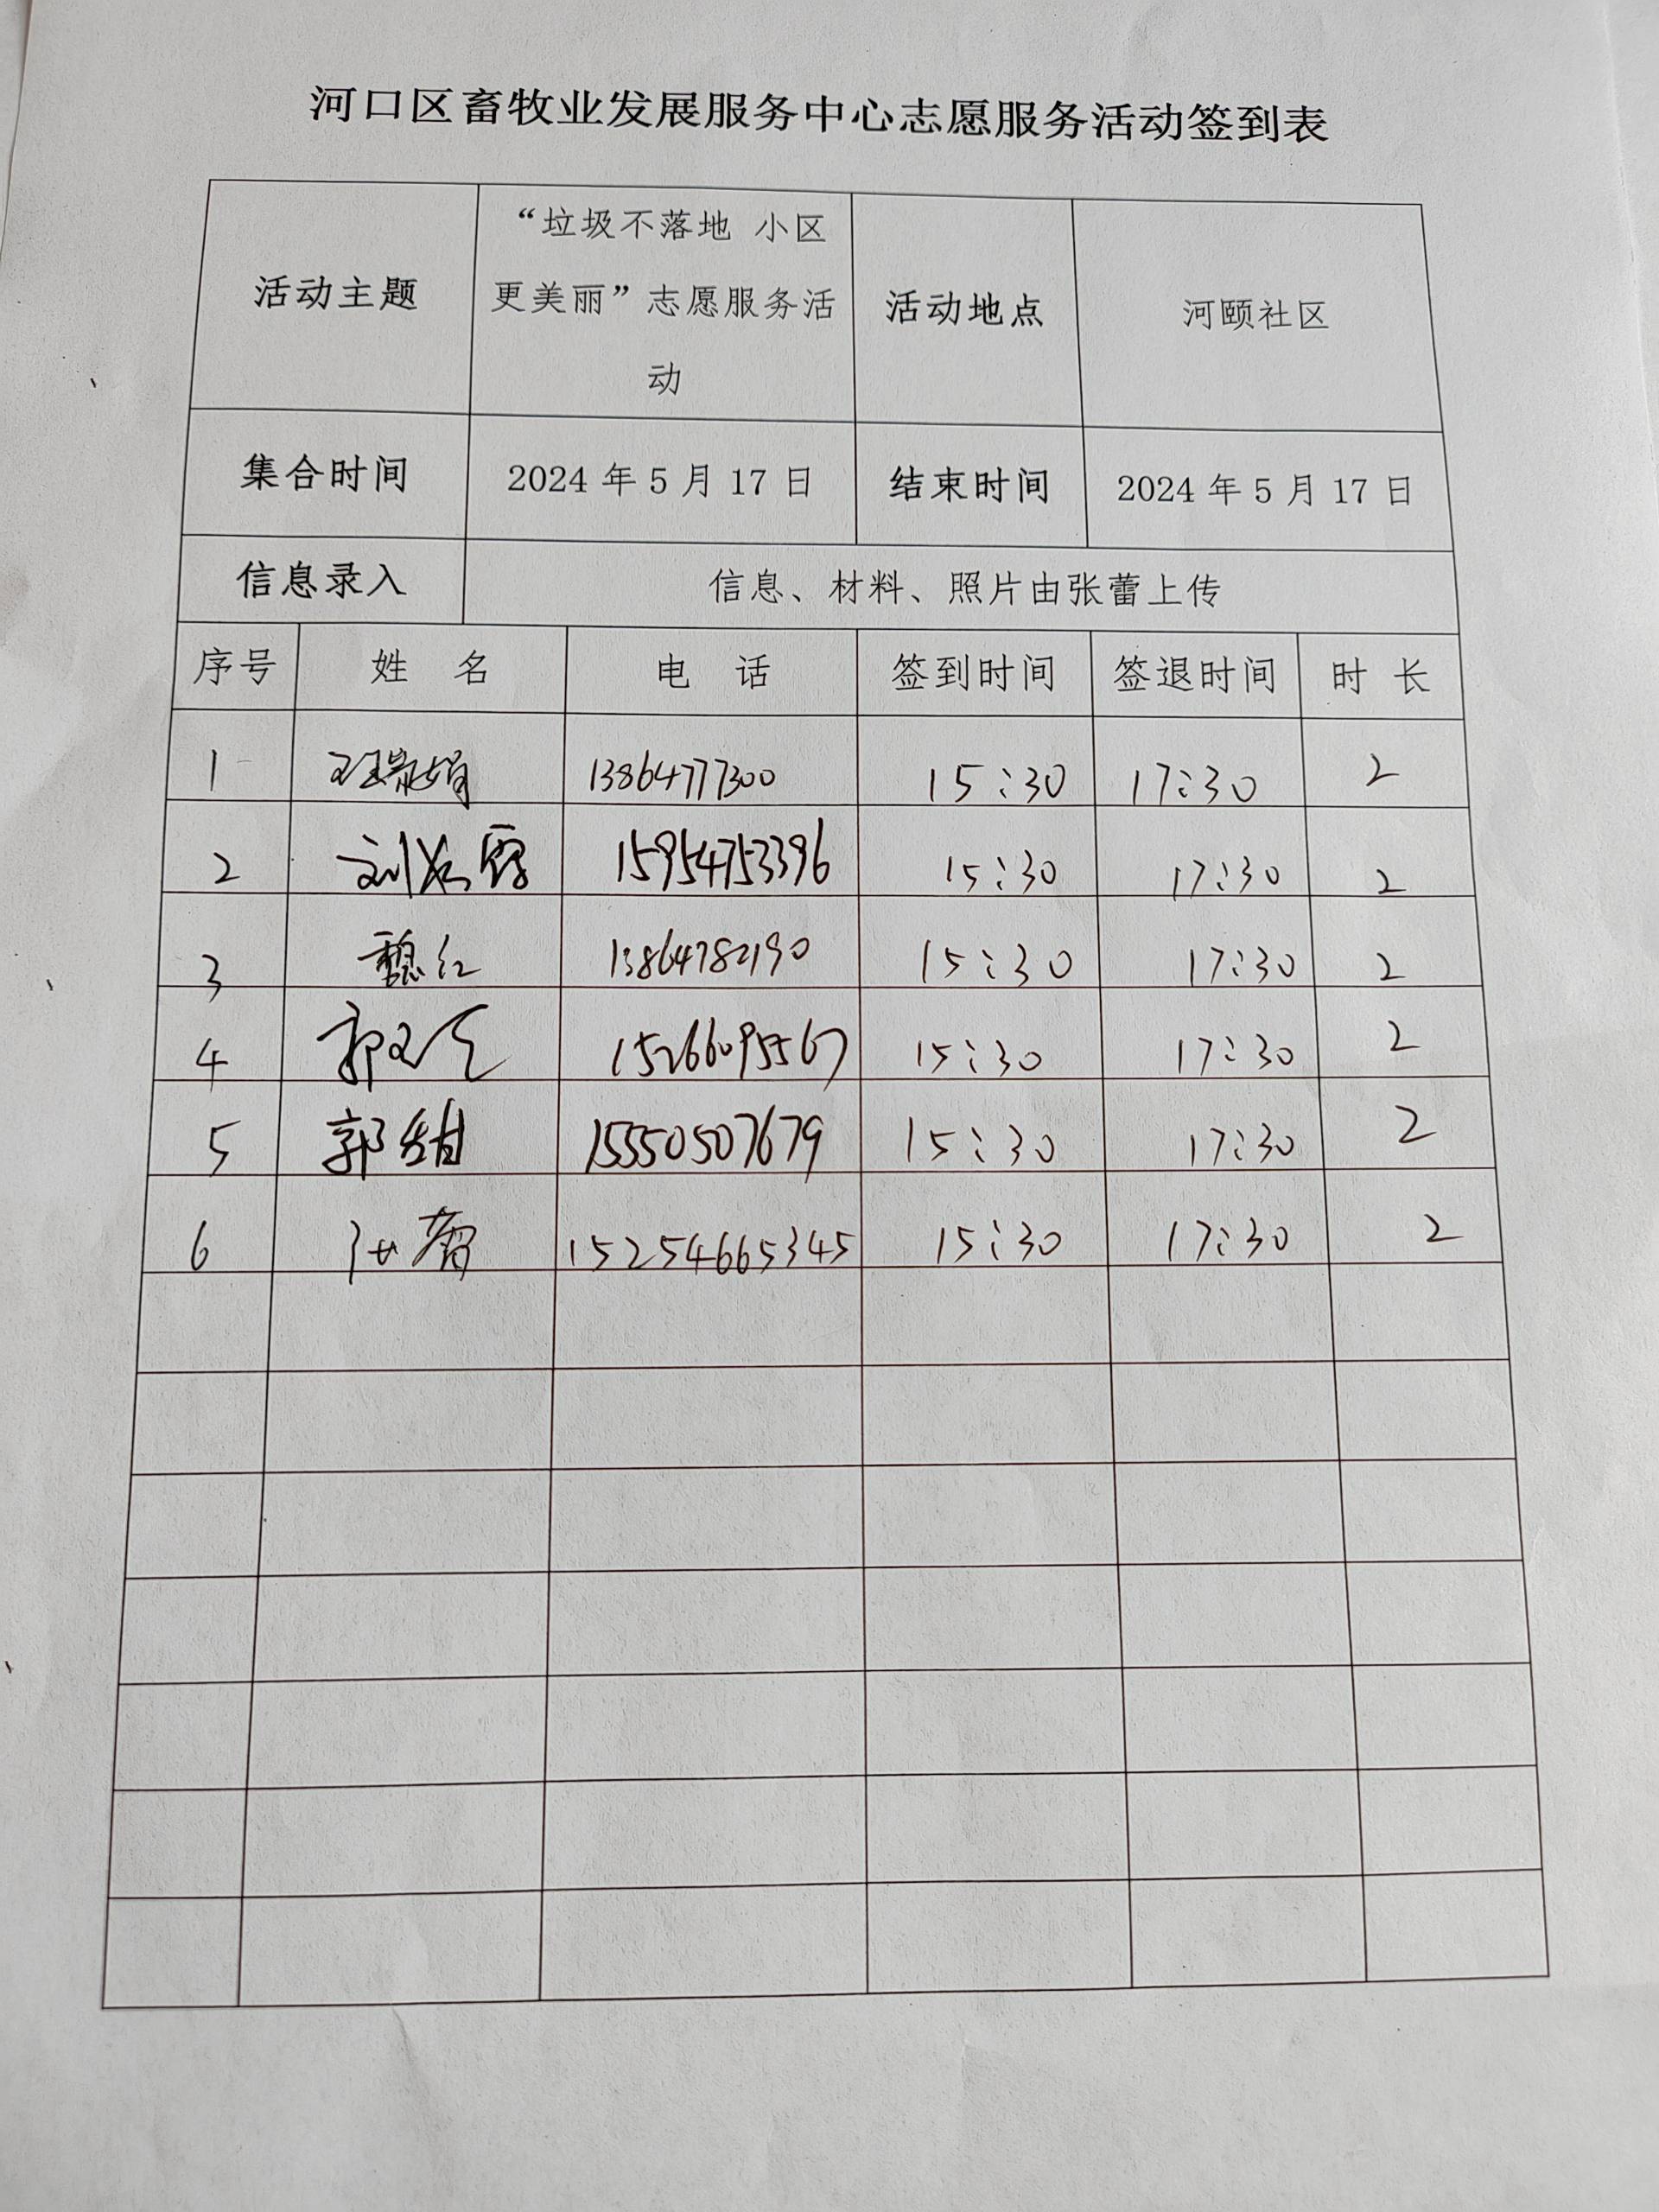 河口区畜牧业发展服务中心志愿服务活动签到表
活动主题 “垃圾不落地 小区更美丽”志愿服务活动 活动地点 河颐社区
集合时间 2024年5月17日 结束时间 2024年5月17日
信息录入 信息、材料、照片由张蕾上传
序号 姓 名 电 话 签到时间 签退时间 时 长
1 13864777300 15:30 17:30 2
2 刘 15954753396 15:30 17:30 2
3 魏红 13864782190 15:30 17:30 2
4 郭 15266095567 15:30 17:30 2
5 郭甜 15550507679 15:30 17:30 2
6 张蕾 15254665345 15:30 17:30 2